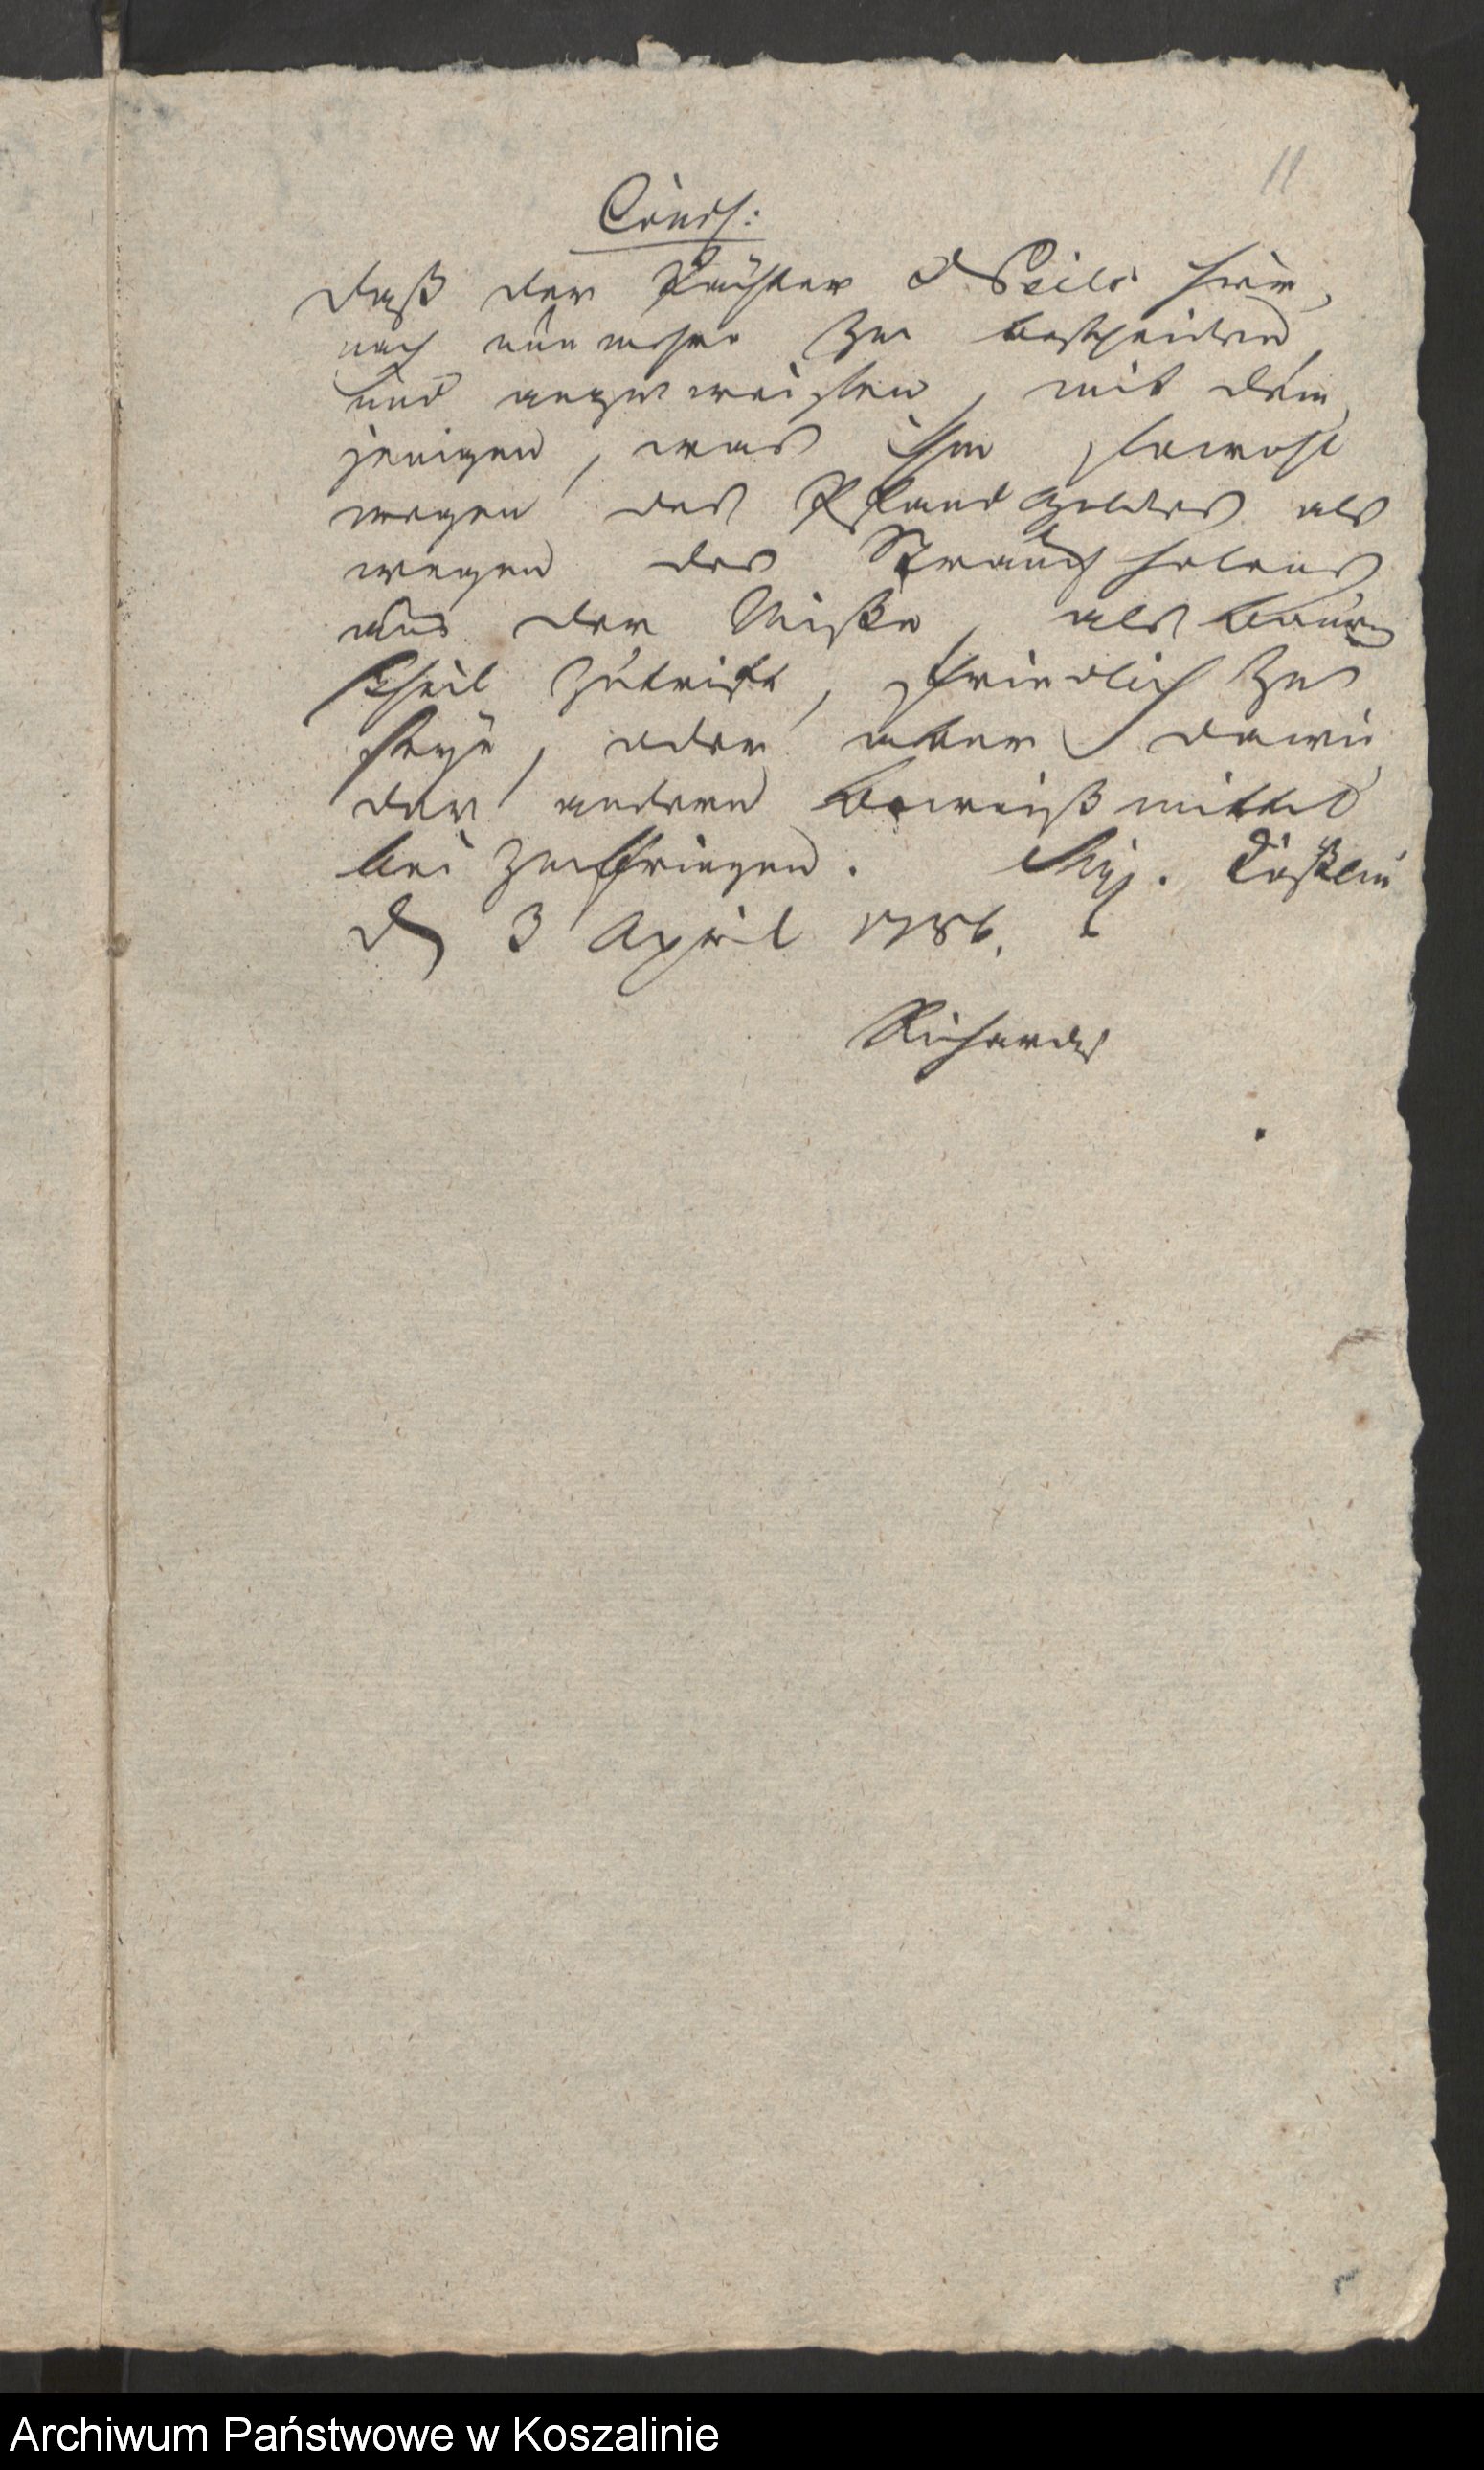 11
Concl:
daß der Pächter Seils hier,
nach nun mehro zu bescheiden
und anzuweisen, mit dem,
jenigen, was ihm sowohl
wegen des Pfand Geldes als
wegen des Strauch holens
aus der als
theil zutrift, friedlich zu
seyn, oder aber dawi,
der andere beweiß mittel
bei zu bringen. Sig. Cößlin
d 3 April 1786.
Richards
Archiwum Państwowe w Koszalinie